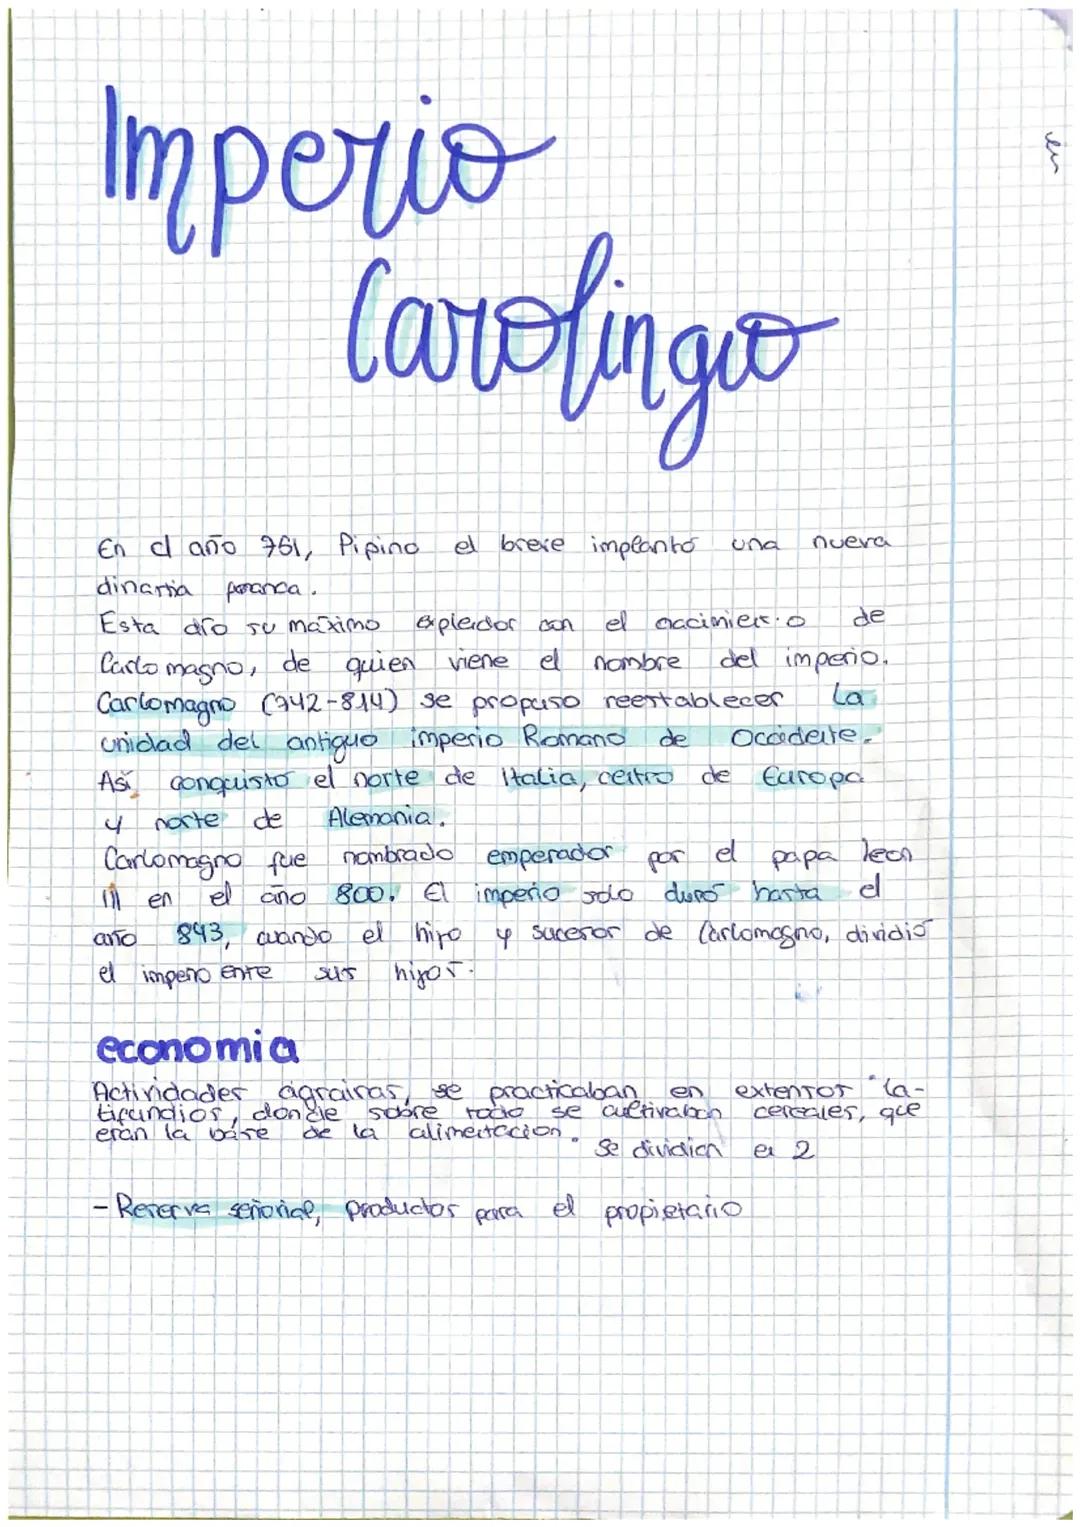 Imperio
Carolingio
en
En el año 751, Pipino el breve implantó una nueva
dinartia
Esta dio su máximo explendor con el nacimiento de
Carlo magno, de quien viene el nombre del imperio.
Carlomagno (742-814) se propuso reestablecer la
unidad del antiguo imperio Romano de Occidente.
Así conquistó el norte de Italia, centro de Europa
y norte de Alemania.
Carlomagno fue nombrado emperador por el papa leon
III en el año 800. El imperio solo duró hasta el
año 843, cuando el hijo y sucesor de Carlomagno, dividió
el imperio entre sus hijos.
economia
Actividades agrairas, se practicaban en extensos "la-
tifundios, donde sobre todo se cultivaban cereales, que
eran la base de la alimentacion. Se dividian en 2
- Reserva señorial, productos para el propietario